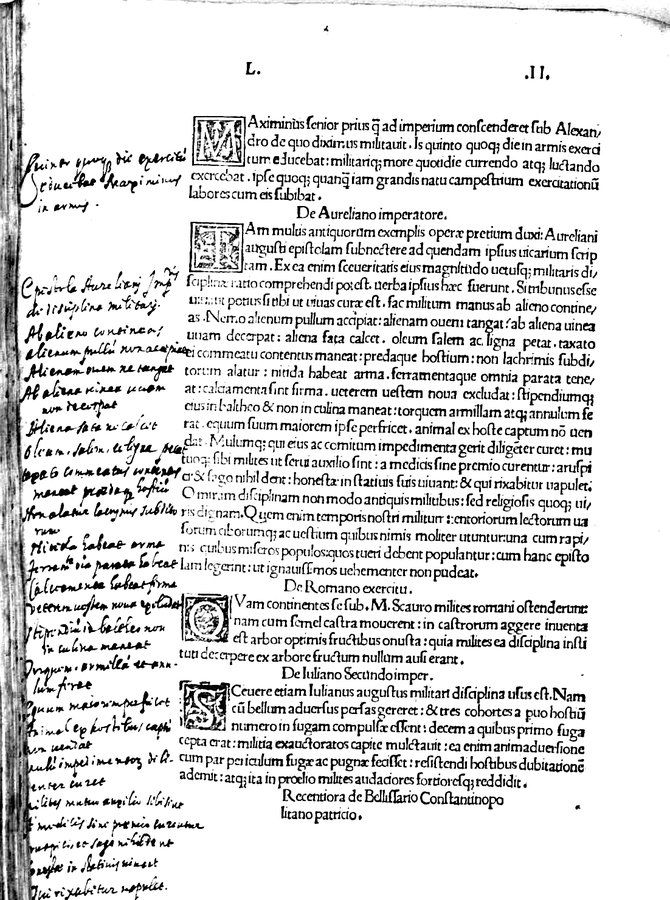 L.
.II.
MAximinus senior prius q̃ ad imperium conscenderet sub Alexan/
dro de quo diximus militauit. Is quinto quoq; die in armis exerci
tum educebat: militariq; more quotidie currendo atq; luctando
exercebat. ipse quoq; quanq̃ iam grandis natu campestrium exercitationũ
labores cum eis subibat.
De Aureliano imperatore.
IAm multis antiquorum exemplis operæ pretium duxi: Aureliani
augusti epistolam subnectere ad quendam ipsius uicarium scrip
tam. Ex ea enim sceueritatis eius magnitudo uetusq; militaris di/
sciplinæ ratio comprehendi potest. uerba ipsius hæc fuerunt. Si tribunus esse
potius si tibi ut uiuas curæ est. fac militum manus ab alieno contine/
as. Nemo alienum pullum accipiat: alienam ouem tangat: ab aliena uinea
uuam decerpat: aliena sata calcet. oleum salem ac ligna petat. taxato
commeatu contentus maneat: prædaque hostium: non lachrimis subdi/
torum alatur: nitida habeat arma. ferramentaque omnia parata tene/
at: calciamenta sint firma. ueterem uestem noua excludat: stipendiumq;
eius in baltheo & non in culina maneat: torquem armillam atq; annulum fe
rat. equum suum maiorem ipse perfricet. animal ex hoste captum nõ uen
dat. Mulumq; qui eius ac comitum impedimenta gerit diligẽter curet: mu
tuoq; sibi milites ut serui auxilio sint: a medicis sine premio curentur: aruspi
ci & sago nihil dent: honestæ in statiuis suis uiuant: & qui rixabitur uapulet.
O miram disciplinam non modo antiquis militibus: sed religiosis quoq; ui/
ris dignam. Quem enim temporis nostri militum: tentoriorum lectorum ua
sorum ciborumq; ac uestium quibus nimis moliter utuntur: una cum rapi/
nis quibus miseros populos: quos tueri debent populantur: cum hanc episto
lam legerint: ut ignauissimos uehementer non pudeat.
De Romano exercitu.
QVam continentes se sub. M. Scauro milites romani ostenderunt:
nam cum semel castra mouerent: in castrorum aggere inuenta
est arbor optimis fructibus onusta: quia milites ea disciplina insti
tuti decerpere ex arbore fructum nullum ausi erant.
De Iuliano Secundo imper.
SCeuere etiam Iulianus augustus militari disciplina usus est. Nam
cũ bellum aduersus persas gereret: & tres cohortes a puo hostiũ
numero in fugam compulsæ essent: decem a quibus primo fuga
cepta erat: militia exauctoratos capite mulctauit: ea enim animaduersione
cum par periculum fugæ ac pugnæ fecisset: resistendi hostibus dubitationẽ
ademit: atq; ita in proelio milites audaciores fortioresq; reddidit.
Recentiora de Bellissario Constantinopo
litano patricio.
die exercitũ
educebat
in armis.
Epistola Aureliani Imp.
di disciplina militari.
Ab alieno contineas
alienum pullũ non accipiat
Alienam ouem ne tangat
Ab aliena uinea uuam
non decerpat
Aliena sata ni calcit
Oleum, salem, et ligna petat
maneat prædaq hostiũ
Nitida habeat arma
parata habeat
Calceamenta habeat firma
Veterem uestem noua excludat
Stipendiũ in baltheo non
in culina maneat
lum ferat
non uendat
curet